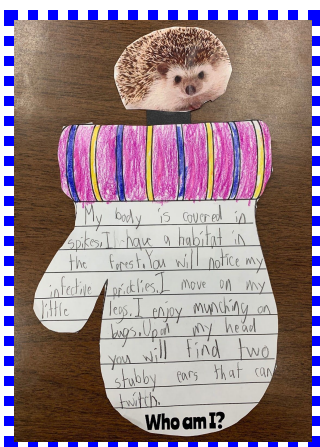 My body is covered in
spikes. I have a habitat in
the forest. You will notice my
infective pricklies. I move on my
little legs. I enjoy munching on
bugs. Upon my head
you will find two
stubby ears that can
twitch.
Who am I?